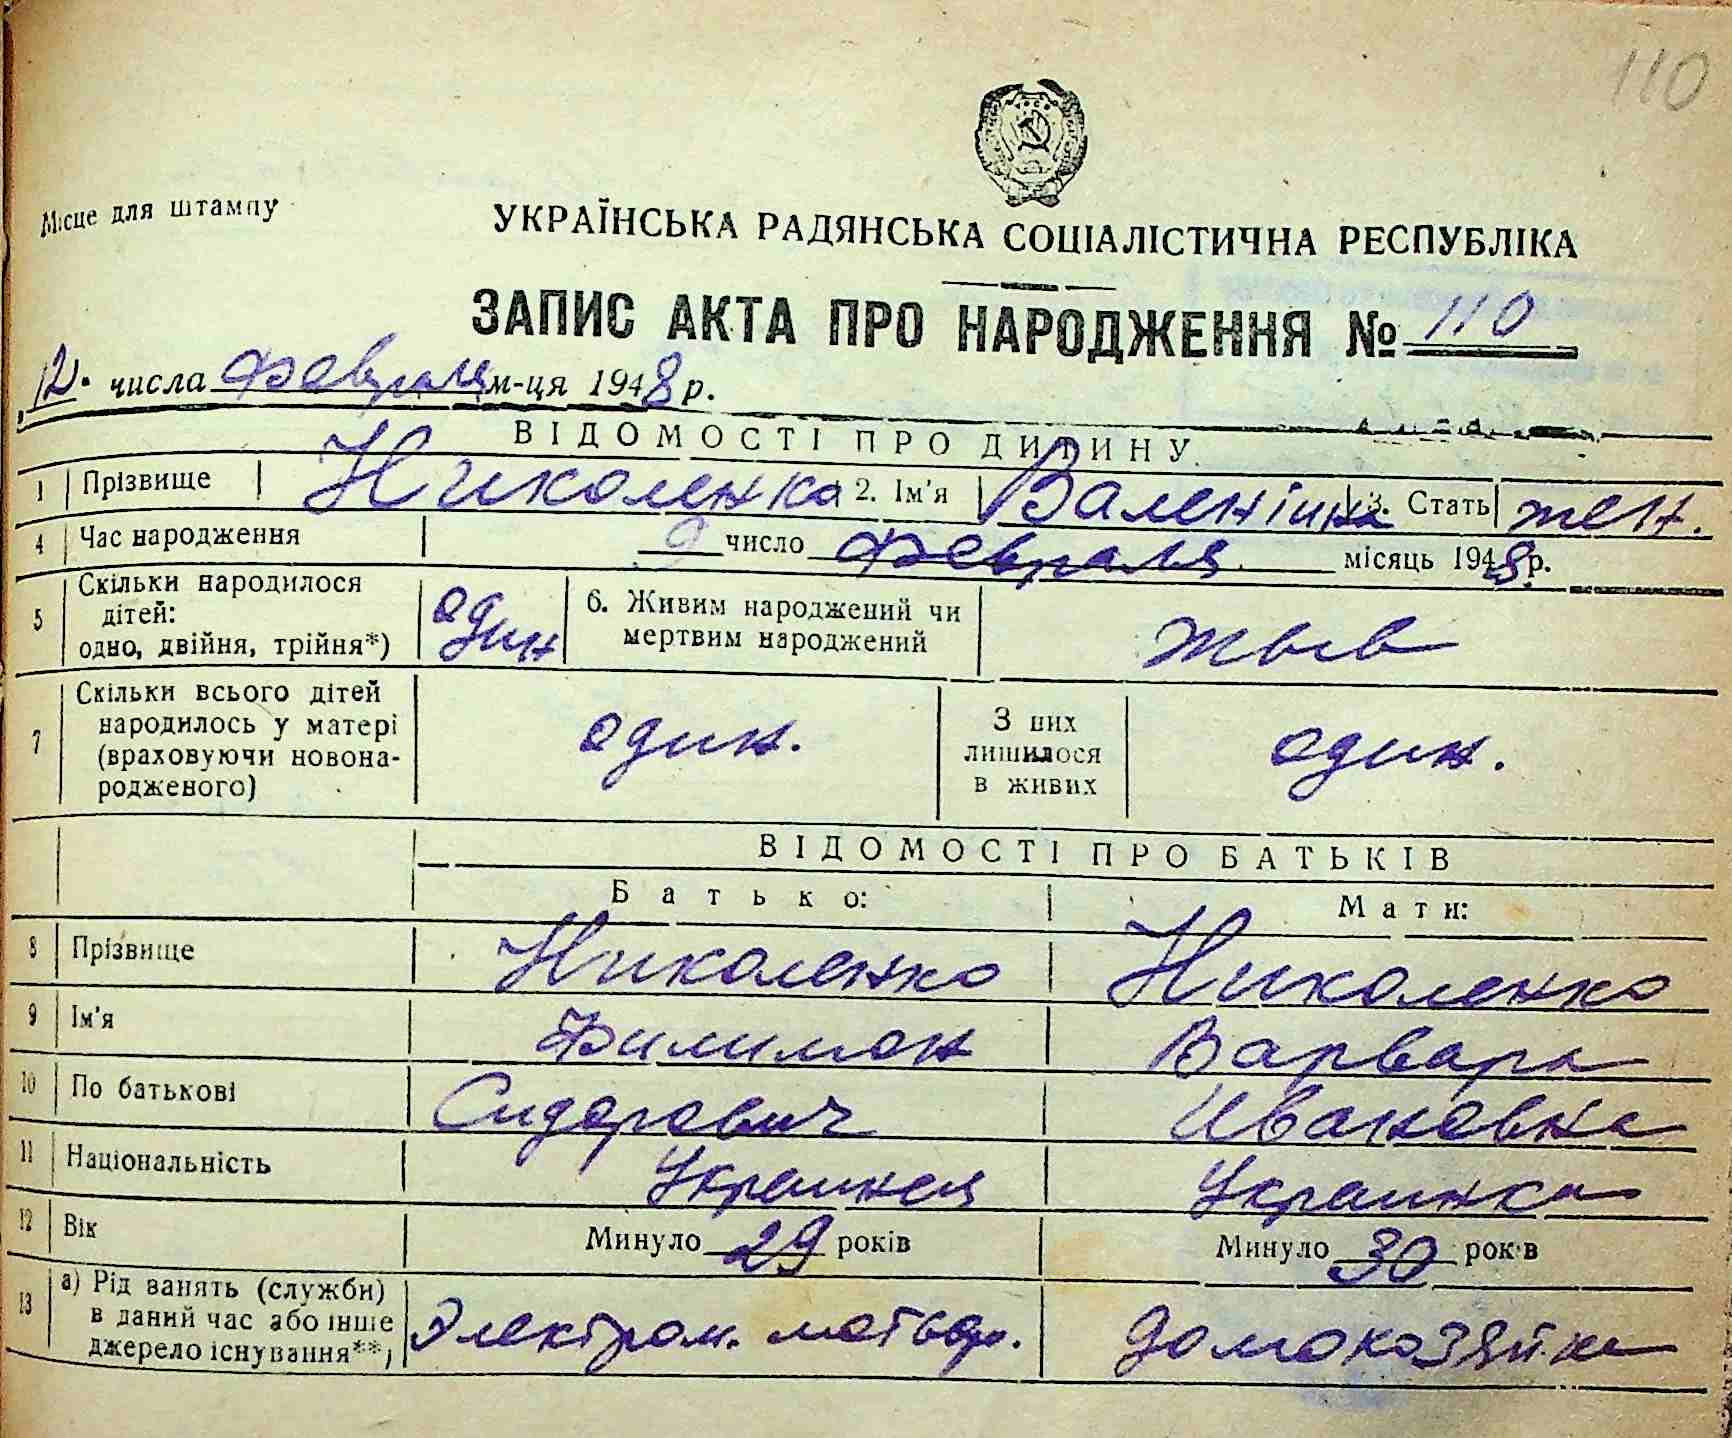 110
Місце для штампу
УКРАЇНСЬКА РАДЯНСЬКА СОЦІАЛІСТИЧНА РЕСПУБЛІКА
ЗАПИС АКТА ПРО НАРОДЖЕННЯ № 110
12. числа Февраля м-ця 1948 р.
ВІДОМОСТІ ПРО ДИТИНУ
1 Прізвище Николенко 2. Ім'я Валентина 3. Стать жен.
4 Час народження 9 число Февраля місяць 1948 р.
5 Скільки народилося дітей: одно, двійня, трійня*) один 6. Живим народжений чи мертвим народжений жыв
7 Скільки всього дітей народилось у матері (враховуючи новонародженого) один. З них лишилося в живих один.
ВІДОМОСТІ ПРО БАТЬКІВ
Батько: Мати:
8 Прізвище Николенко Николенко
9 Ім'я Филимон Варвара
10 По батькові Сидорович Ивановна
11 Національність Украинец Украинка
12 Вік Минуло 29 років Минуло 30 років
13 а) Рід занять (служби) в даний час або інше джерело існування**) Электром. домохозяйка